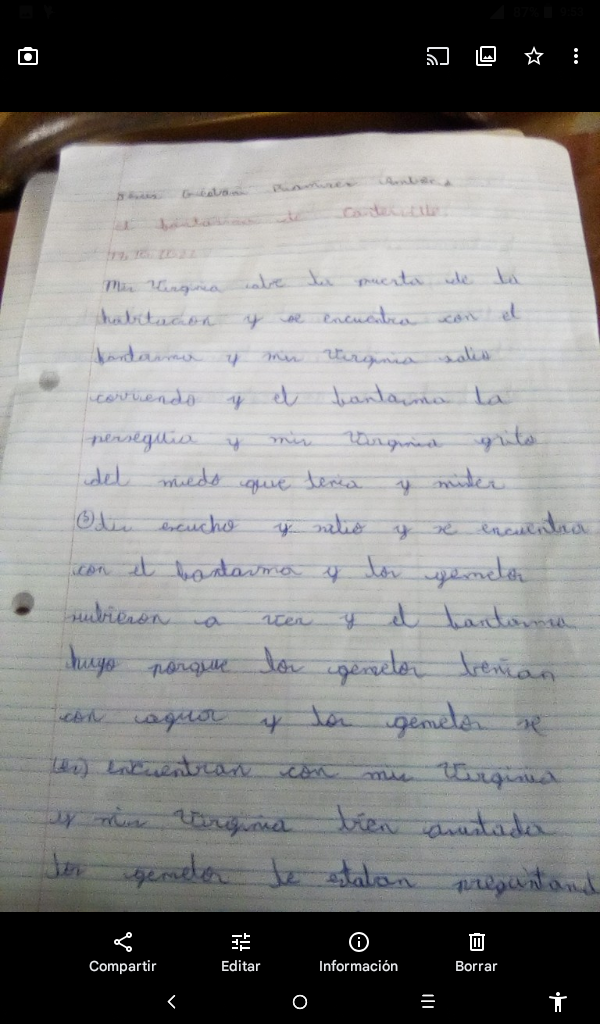 Esteban Ramirez
el fantasma de Canterville
mis Virginia abre la puerta de la
habitacion y se encuentra con el
fantasma y mis Virginia salio
corriendo y el fantasma la
perseguia y mis Virginia grito
del miedo que tenia y mister
escucho y salio y se encuentra
con el fantasma y los gemelos
subieron a ver y el fantasma
huyo porque los gemelos tenian
con agua y los gemelos se
encuentran con mis Virginia
y mis Virginia bien asustada
los gemelos le estaban preguntand
Compartir Editar Información Borrar